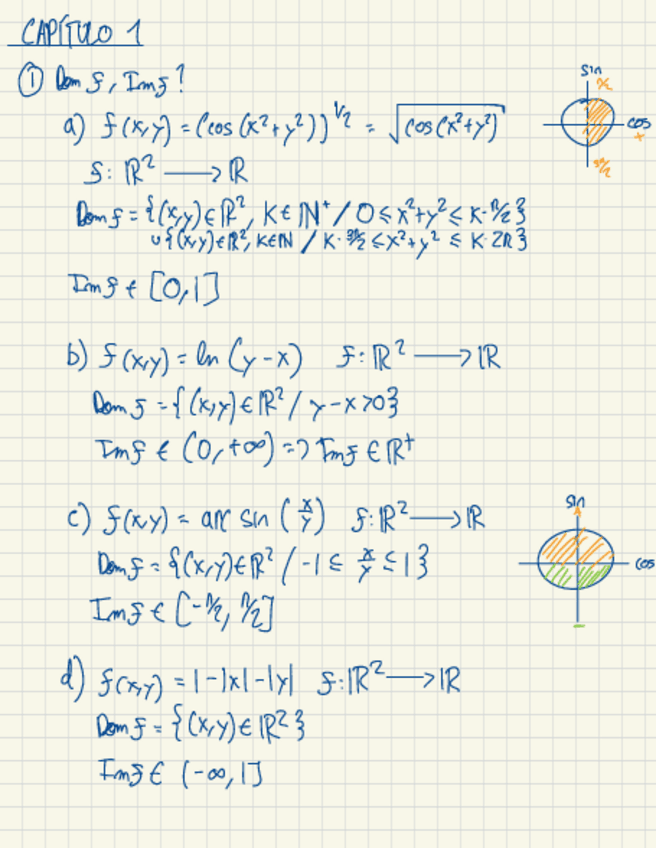 CAPÍTULO 1
① Dom f, Im f?
a) f(x,y) = (cos(x²+y²))^1/2 = √cos(x²+y²)
sin
π/2
cos
+
3π/2
f: ℝ² ⟶ ℝ
Dom f = {(x,y)∈ℝ², K∈ℕ⁺ / 0≤x²+y²≤K·π/2}
∪{(x,y)∈ℝ², K∈ℕ / K·3π/2≤x²+y²≤K·2π}
Im f ∈ [0,1]
b) f(x,y) = ln(y-x) f: ℝ² ⟶ ℝ
Dom f = {(x,y)∈ℝ² / y-x>0}
Im f ∈ (0,+∞) => Im f ∈ ℝ⁺
c) f(x,y) = arc sin(x/y) f: ℝ² ⟶ ℝ
sin
cos
Dom f = {(x,y)∈ℝ² / -1≤x/y≤1}
Im f ∈ [-π/2, π/2]
d) f(x,y) = 1-|x|-|y| f: ℝ² ⟶ ℝ
Dom f = {(x,y)∈ℝ²}
Im f ∈ (-∞,1]